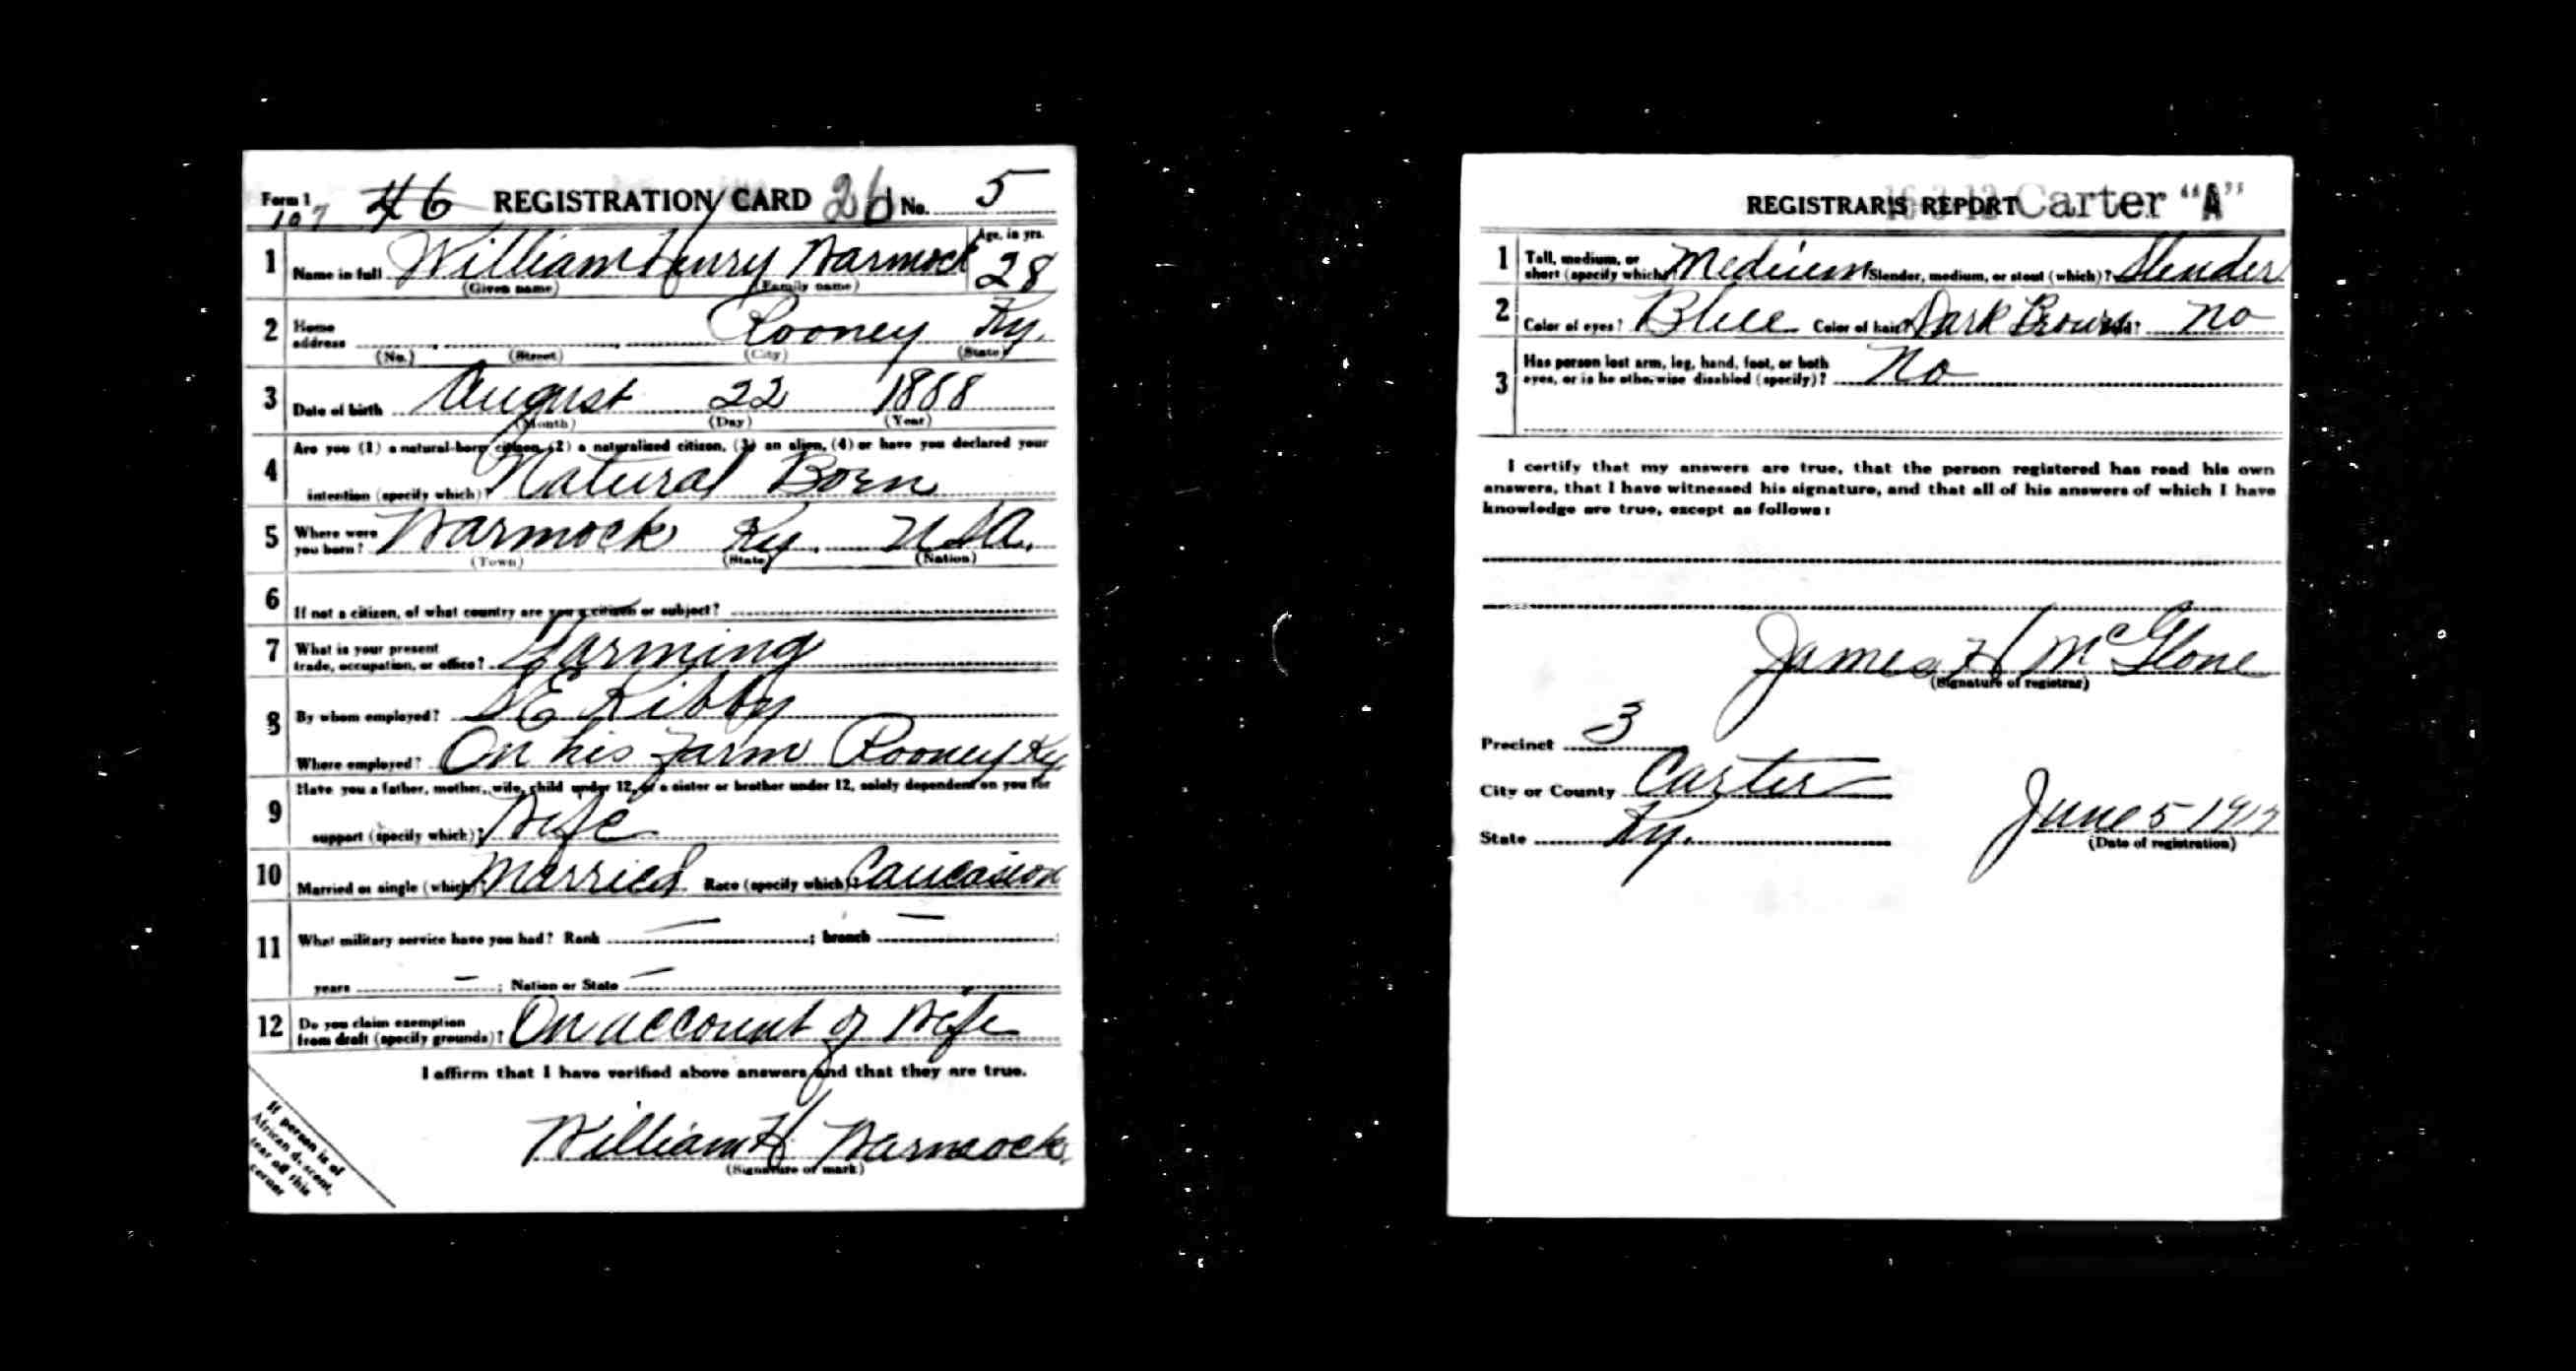 Form 1 107 46 REGISTRATION CARD 26 No. 5
1 Name in full William Henry Warnock Age, in yrs. 28
(Given name) (Family name)
2 Home address Rooney Ky.
(No.) (Street) (City) (State)
3 Date of birth August 22 1888
(Month) (Day) (Year)
4 Are you (1) a natural-born citizen, (2) a naturalized citizen, (3) an alien, (4) or have you declared your
intention (specify which)? Natural Born
5 Where were you born? Warnock Ky. USA.
(Town) (State) (Nation)
6 If not a citizen, of what country are you a citizen or subject?
7 What is your present trade, occupation, or office? Farming
8 By whom employed? Kibby
Where employed? On his farm Rooney Ky
9 Have you a father, mother, wife, child under 12, or a sister or brother under 12, solely dependent on you for
support (specify which)? Wife
10 Married or single (which) Married Race (specify which)? Caucasion
11 What military service have you had? Rank — ; branch — ;
years — ; Nation or State —
12 Do you claim exemption from draft (specify grounds)? On account of Wife
I affirm that I have verified above answers and that they are true.
William H Warnock
(Signature or mark)
If person is of
African descent,
tear off this
corner
REGISTRAR'S REPORT Carter "A"
1 Tall, medium, or short (specify which)? Medium Slender, medium, or stout (which)? Slender
2 Color of eyes? Blue Color of hair? Dark Brown Bald? No
3 Has person lost arm, leg, hand, foot, or both
eyes, or is he otherwise disabled (specify)? No
I certify that my answers are true, that the person registered has read his own
answers, that I have witnessed his signature, and that all of his answers of which I have
knowledge are true, except as follows:
James H McGlone
(Signature of registrar)
Precinct 3
City or County Carter
State Ky. June 5 1917
(Date of registration)